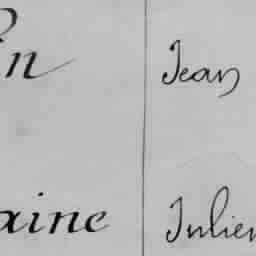 n Jean
aine Julien